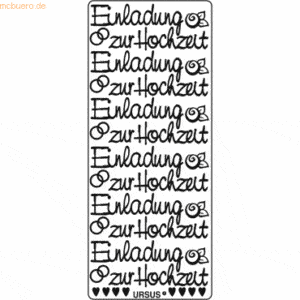 mcbuero.de
Einladung
zur Hochzeit
Einladung
zur Hochzeit
Einladung
zur Hochzeit
Einladung
zur Hochzeit
Einladung
zur Hochzeit
Einladung
zur Hochzeit
URSUS